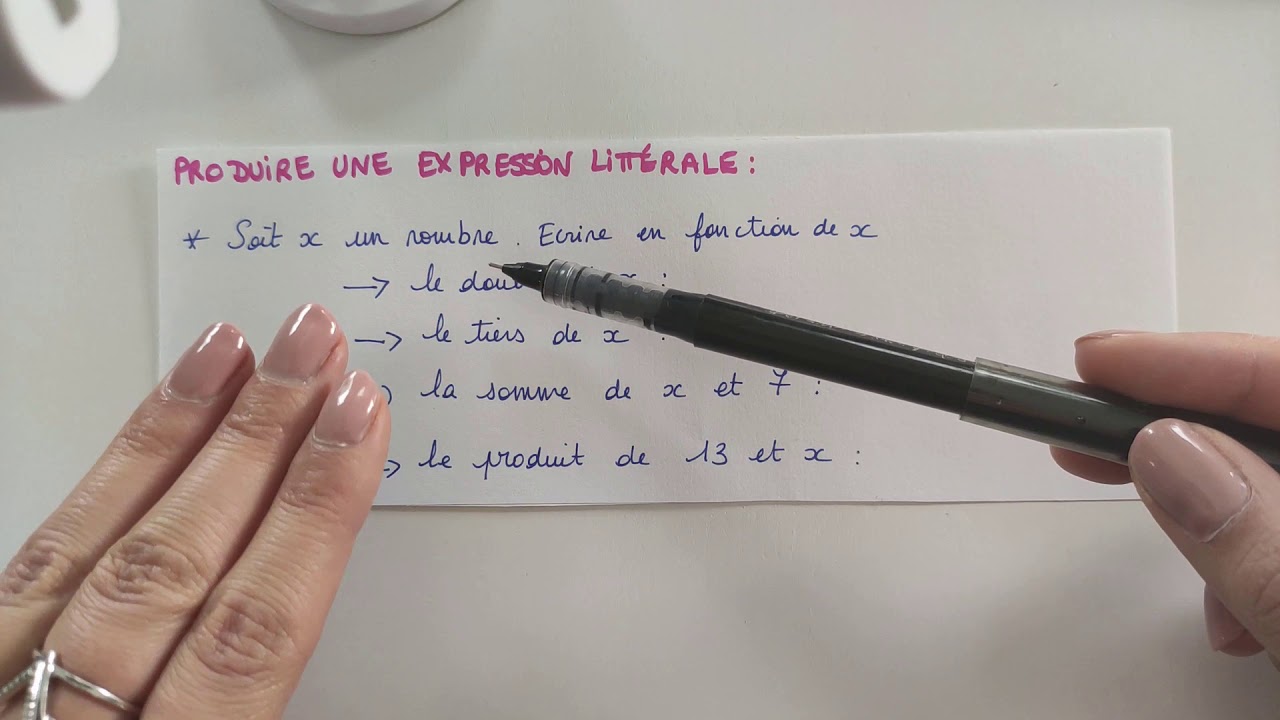 PRODUIRE UNE EXPRESSION LITTÉRALE :
* Soit x un nombre. Ecrire en fonction de x
→ le x :
→ le tiers de x :
la somme de x et 7 :
→ le produit de 13 et x :